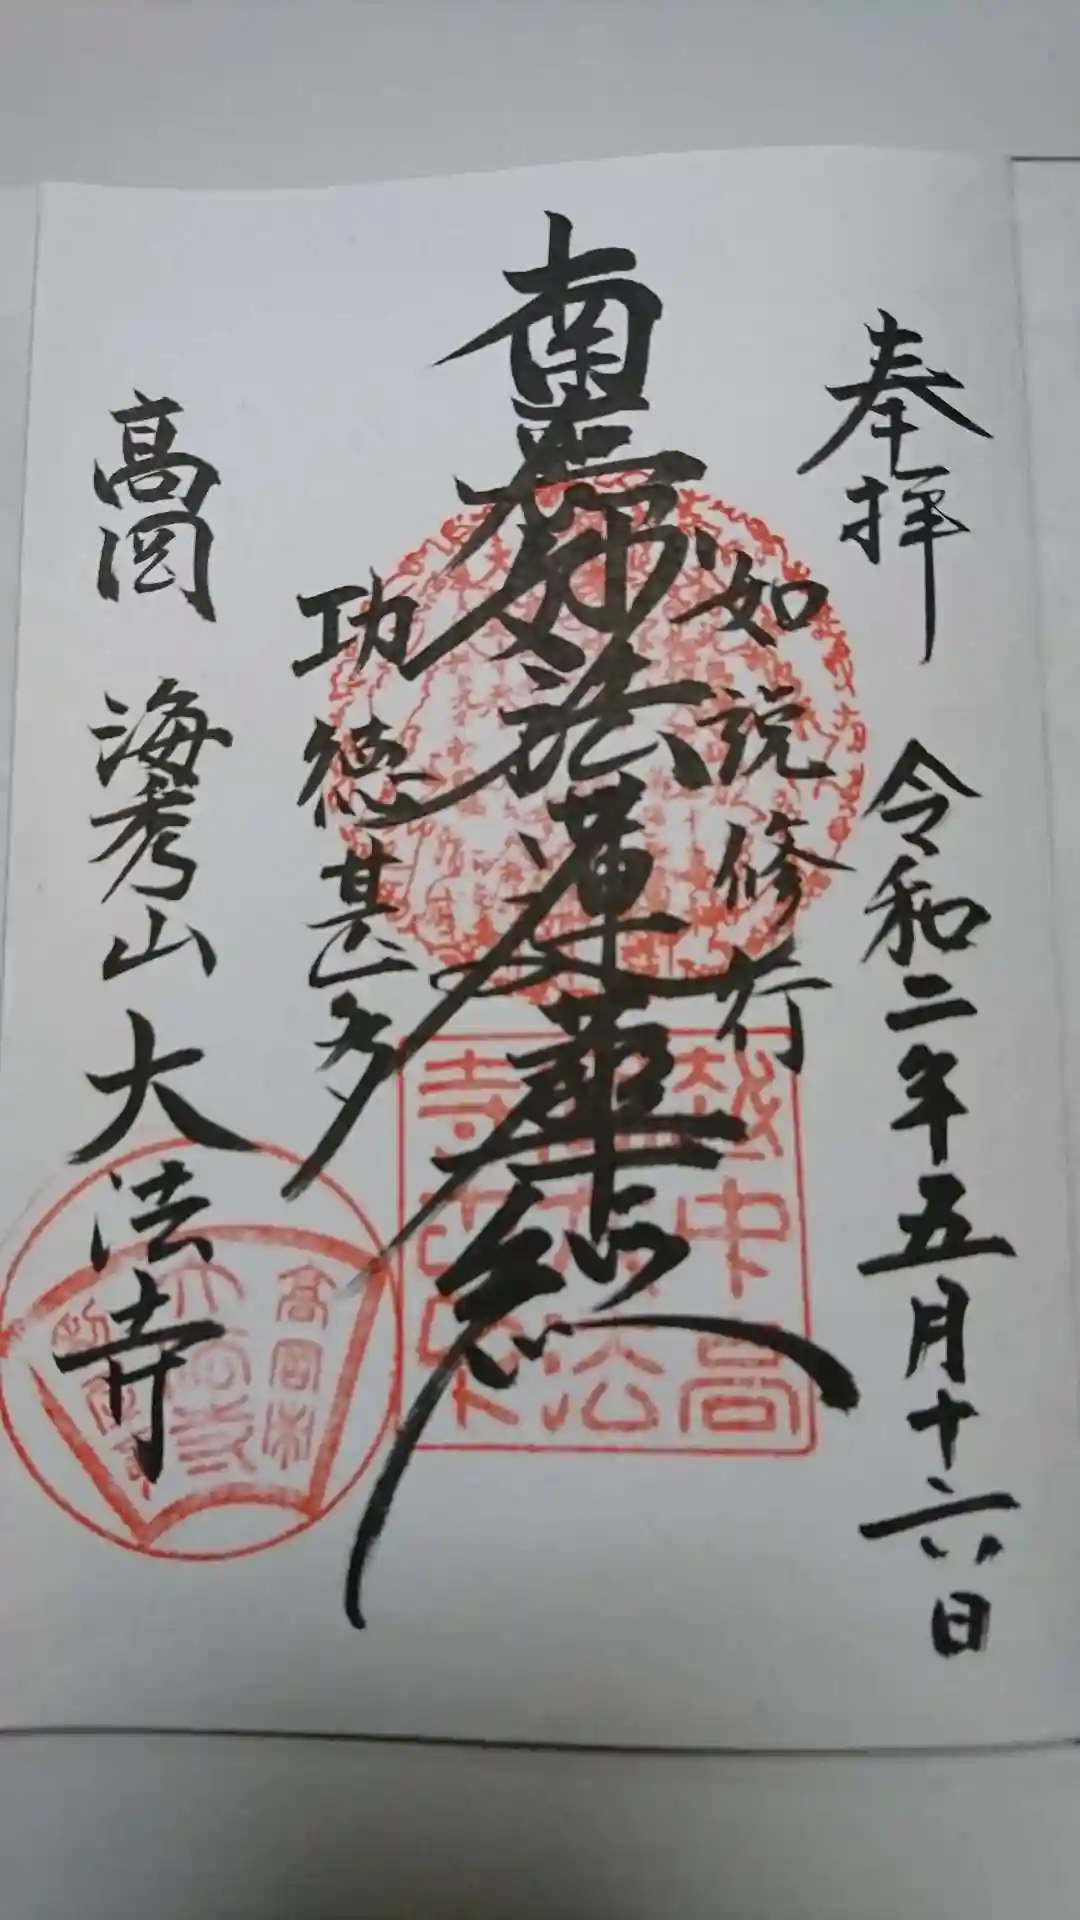 奉拝
令和二年五月十六日
如説修行
南無妙法蓮華経
功徳甚多
高岡 海秀山 大法寺
越中高
法
寺
高岡